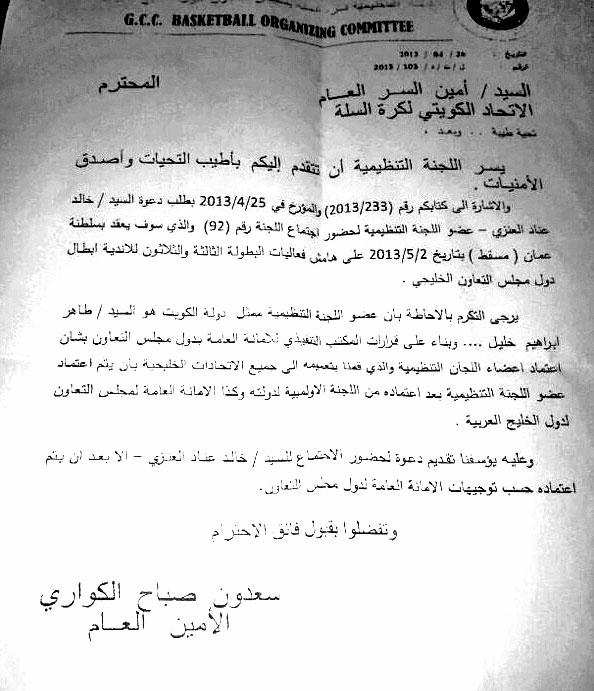 G.C.C. BASKETBALL ORGANIZING COMMITTEE
التاريخ : 2013 / 04 / 26
الرقم : ل / ت / ه / 103 / 2013
السيد / أمين السر العـــام المحترم
الاتحاد الكويتي لكرة السلة
تحية طيبة .. وبعد ،
يسر اللجنة التنظيمية أن تتقدم إليكم بأطيب التحيات وأصدق
الأمنيات .
والاشارة الى كتابكم رقم (2013/233) والمؤرخ في 2013/4/25 بطلب دعوة السيد / خالد
عناد العنزي – عضو اللجنة التنظيمية لحضور اجتماع اللجنة رقم (92) والذي سوف يعقد بسلطنة
عمان ( مسقط ) بتاريخ 2013/5/2 على هامش فعاليات البطولة الثالثة والثلاثون للاندية ابطال
دول مجلس التعاون الخليجي .
يرجى التكرم بالاحاطة بان عضو اللجنة التنظيمية ممثل دولة الكويت هو السيد / طاهر
ابراهيم خليل .... وبناء على قرارات المكتب التنفيذي للامانة العامة بدول مجلس التعاون بشان
اعتماد اعضاء اللجان التنظيمية والذي قمنا بتعميمه الى جميع الاتحادات الخليجية بان يتم اعتماد
عضو اللجنة التنظيمية بعد اعتماده من اللجنة الاولمبية لدولته وكذا الامانة العامة لمجلس التعاون
لدول الخليج العربية .
وعليه يؤسفنا تقديم دعوة لحضور الاجتماع للسيد / خالد عناد العنزي – الا بعد ان يتم
اعتماده حسب توجيهات الامانة العامة لدول مجلس التعاون.
وتفضلوا بقبول فائق الاحترام
سعدون صباح الكواري
الأمين العـــام